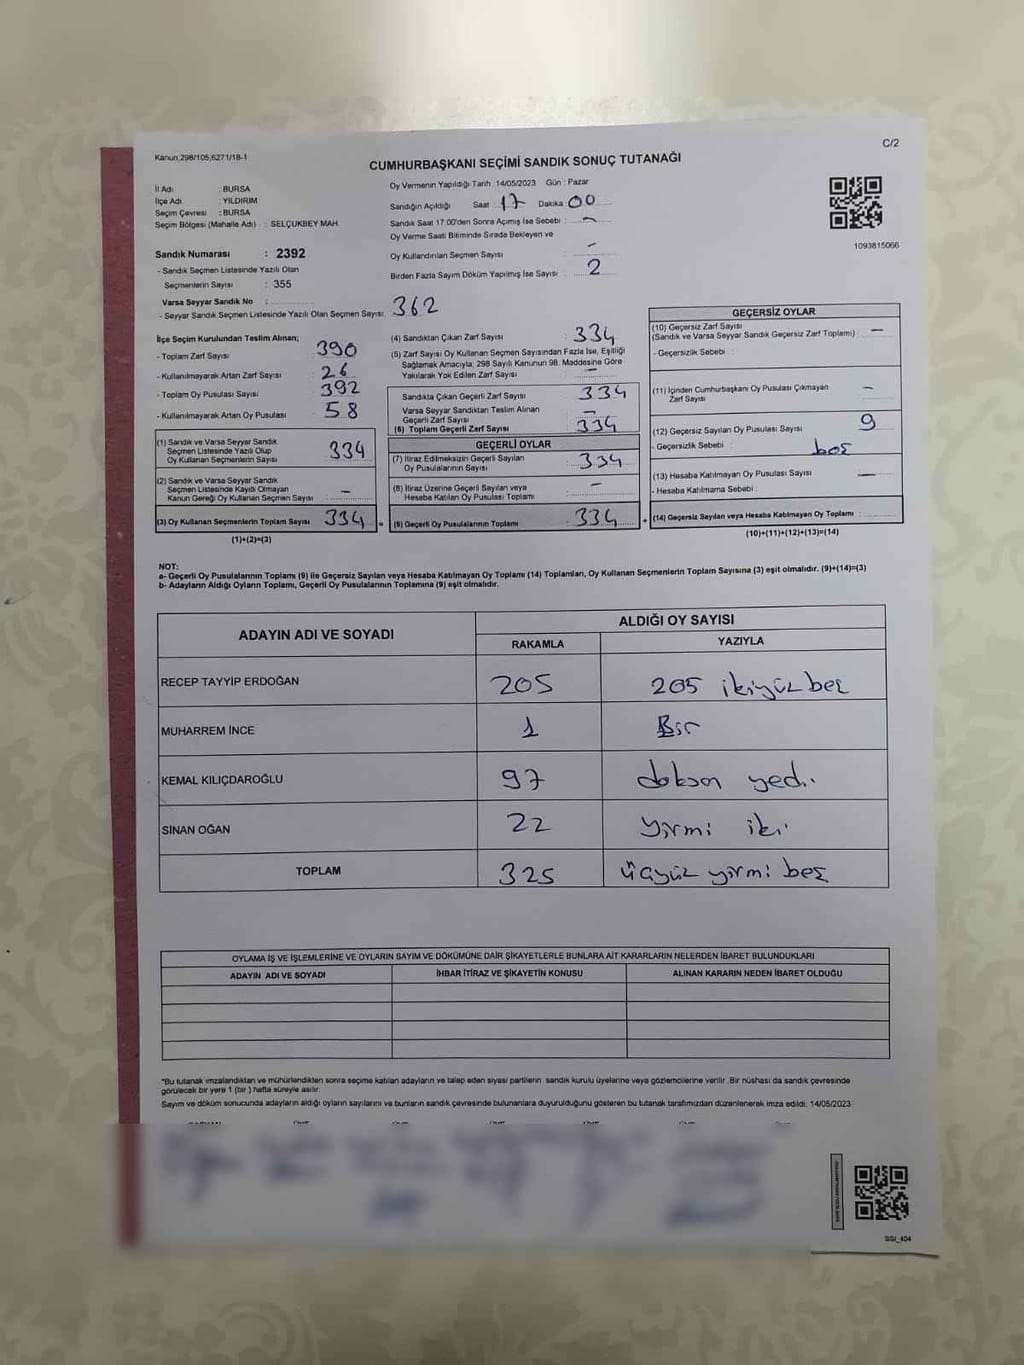 C/2
Kanun;298/105,6271/18-1
CUMHURBAŞKANI SEÇİMİ SANDIK SONUÇ TUTANAĞI
İl Adı : BURSA
İlçe Adı : YILDIRIM
Seçim Çevresi : BURSA
Seçim Bölgesi (Mahalle Adı) : SELÇUKBEY MAH.
Sandık Numarası : 2392
- Sandık Seçmen Listesinde Yazılı Olan
Seçmenlerin Sayısı : 355
Varsa Seyyar Sandık No :
- Seyyar Sandık Seçmen Listesinde Yazılı Olan Seçmen Sayısı: 362
Oy Vermenin Yapıldığı Tarih :14/05/2023 Gün : Pazar
Sandığın Açıldığı Saat 17 Dakika 00
Sandık Saat 17:00'den Sonra Açımış İse Sebebi : -
Oy Verme Saati Bitiminde Sırada Bekleyen ve
Oy Kullandırılan Seçmen Sayısı -
Birden Fazla Sayım Döküm Yapılmış İse Sayısı 2
1093815066
İlçe Seçim Kurulundan Teslim Alınan;
- Toplam Zarf Sayısı 390
- Kullanılmayarak Artan Zarf Sayısı : 26
- Toplam Oy Pusulası Sayısı : 392
- Kullanılmayarak Artan Oy Pusulası 58
(1) Sandık ve Varsa Seyyar Sandık
Seçmen Listesinde Yazılı Olup
Oy Kullanan Seçmenlerin Sayısı 334
(2) Sandık ve Varsa Seyyar Sandık
Seçmen Listesinde Kaydı Olmayan
Kanun Gereği Oy Kullanan Seçmen Sayısı -
(3) Oy Kullanan Seçmenlerin Toplam Sayısı 334 =
(1)+(2)=(3)
(4) Sandıktan Çıkan Zarf Sayısı : 334
(5) Zarf Sayısı Oy Kullanan Seçmen Sayısından Fazla İse, Eşitliği
Sağlamak Amacıyla; 298 Sayılı Kanunun 98. Maddesine Göre
Yakılarak Yok Edilen Zarf Sayısı -
Sandıkta Çıkan Geçerli Zarf Sayısı : 334
Varsa Seyyar Sandıktan Teslim Alınan
Geçerli Zarf Sayısı -
(6) Toplam Geçerli Zarf Sayısı : 334
GEÇERLİ OYLAR
(7) İtiraz Edilmeksizin Geçerli Sayılan
Oy Pusulalarının Sayısı : 334
(8) İtiraz Üzerine Geçerli Sayılan veya
Hesaba Katılan Oy Pusulası Toplamı : -
(9) Geçerli Oy Pusulalarının Toplamı : 334 +
GEÇERSİZ OYLAR
(10) Geçersiz Zarf Sayısı
(Sandık ve Varsa Seyyar Sandık Geçersiz Zarf Toplamı) : -
- Geçersizlik Sebebi :
(11) İçinden Cumhurbaşkanı Oy Pusulası Çıkmayan
Zarf Sayısı -
(12) Geçersiz Sayılan Oy Pusulası Sayısı : 9
- Geçersizlik Sebebi : boş
(13) Hesaba Katılmayan Oy Pusulası Sayısı : -
- Hesaba Katılmama Sebebi :
(14) Geçersiz Sayılan veya Hesaba Katılmayan Oy Toplamı :
(10)+(11)+(12)+(13)=(14)
NOT:
a- Geçerli Oy Pusulalarının Toplamı (9) ile Geçersiz Sayılan veya Hesaba Katılmayan Oy Toplamı (14) Toplamları, Oy Kullanan Seçmenlerin Toplam Sayısına (3) eşit olmalıdır. (9)+(14)=(3)
b- Adayların Aldığı Oyların Toplamı, Geçerli Oy Pusulalarının Toplamına (9) eşit olmalıdır.
ADAYIN ADI VE SOYADI ALDIĞI OY SAYISI
RAKAMLA YAZIYLA
RECEP TAYYİP ERDOĞAN 205 205 ikiyüz beş
MUHARREM İNCE 1 Bir
KEMAL KILIÇDAROĞLU 97 doksan yedi
SİNAN OĞAN 22 yirmi iki
TOPLAM 325 üçyüz yirmi beş
OYLAMA İŞ VE İŞLEMLERİNE VE OYLARIN SAYIM VE DÖKÜMÜNE DAİR ŞİKAYETLERLE BUNLARA AİT KARARLARIN NELERDEN İBARET BULUNDUKLARI
ADAYIN ADI VE SOYADI İHBAR İTİRAZ VE ŞİKAYETİN KONUSU ALINAN KARARIN NEDEN İBARET OLDUĞU
*Bu tutanak imzalandıktan ve mühürlendikten sonra seçime katılan adayların ve talep eden siyasi partilerin sandık kurulu üyelerine veya gözlemcilerine verilir .Bir nüshası da sandık çevresinde
görülecek bir yere 1 (bir ) hafta süreyle asılır.
Sayım ve döküm sonucunda adayların aldığı oyların sayılarını ve bunların sandık çevresinde bulunanlara duyurulduğunu gösteren bu tutanak tarafımızdan düzenlenerek imza edildi. 14/05/2023
SSI_404